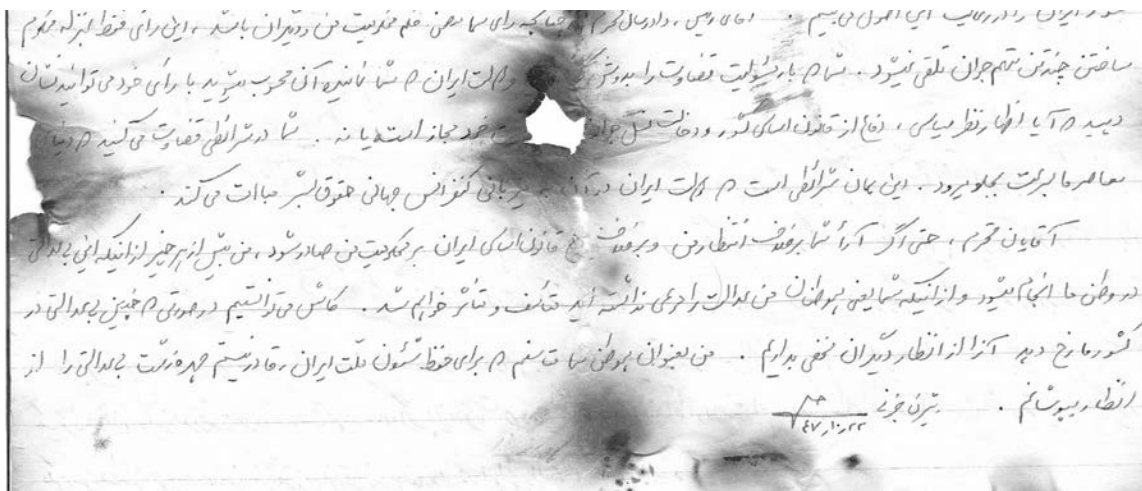 کشور ایران را در رعایت این اصول می‌بینیم. آقای رئیس، دادرسان محترم چنانچه رأی شما متضمن حکم محکومیت من و دیگران باشد، این رأی فقط بمنزله محکوم
ساختن چند تن متهم جوان تلقی نمیشود. شما که بار مسئولیت قضاوت را بدوش و ملت ایران که شما نماینده آن محسوب میشوید با رأی خود می‌توانید نشان
دهید که آیا اظهار نظر سیاسی، دفاع از قانون اساسی کشور و دخالت نسل جوان خود مجاز است یا نه. شما در شرائطی قضاوت می‌کنید که دنیای
معاصر ما بسرعت بجلو میرود. این همان شرائطی است که ملت ایران در آن به میزبانی کنفرانس جهانی حقوق بشر مباهات می‌کند.
آقایان محترم، حتی اگر آراء شما برخلاف انتظار من و برخلاف قانون اساسی ایران بر محکومیت من صادر شود، من بیش از هر چیز از اینکه این بی‌عدالتی
در وطن ما انجام میشود و از اینکه شما یعنی هموطنان من عدالت را مرعی نداشته‌اید متأسف و متأثر خواهم شد. کاش می‌توانستیم در صورتی که چنین بی‌عدالتی در
کشور ما رخ دهد آنرا از انظار دیگران مخفی بداریم. من بعنوان هموطن شما که برای حفظ شئون ملت ایران، قادر نیستم چهره زشت بی‌عدالتی را از
انظار بپوشانم. بیژن جزنی
۴۷ر۱۰ر۲۲